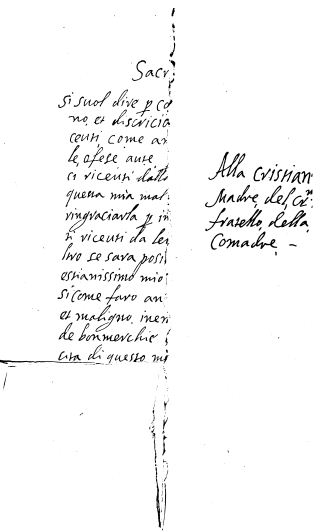 Sacr
si suol dire p co
no, et discricia
centi, come an
le ofese aute
ci ricenti dallo
questa mia mal
ringraciarla p in
ti ricenti da lei
loro se sara posi
estianissimo mio
si come faro an
et maligno, ineri
de bonmerchie
cita di questo mi
Alla Cristian
Madre, del cr.
fratello, della
Comadre –